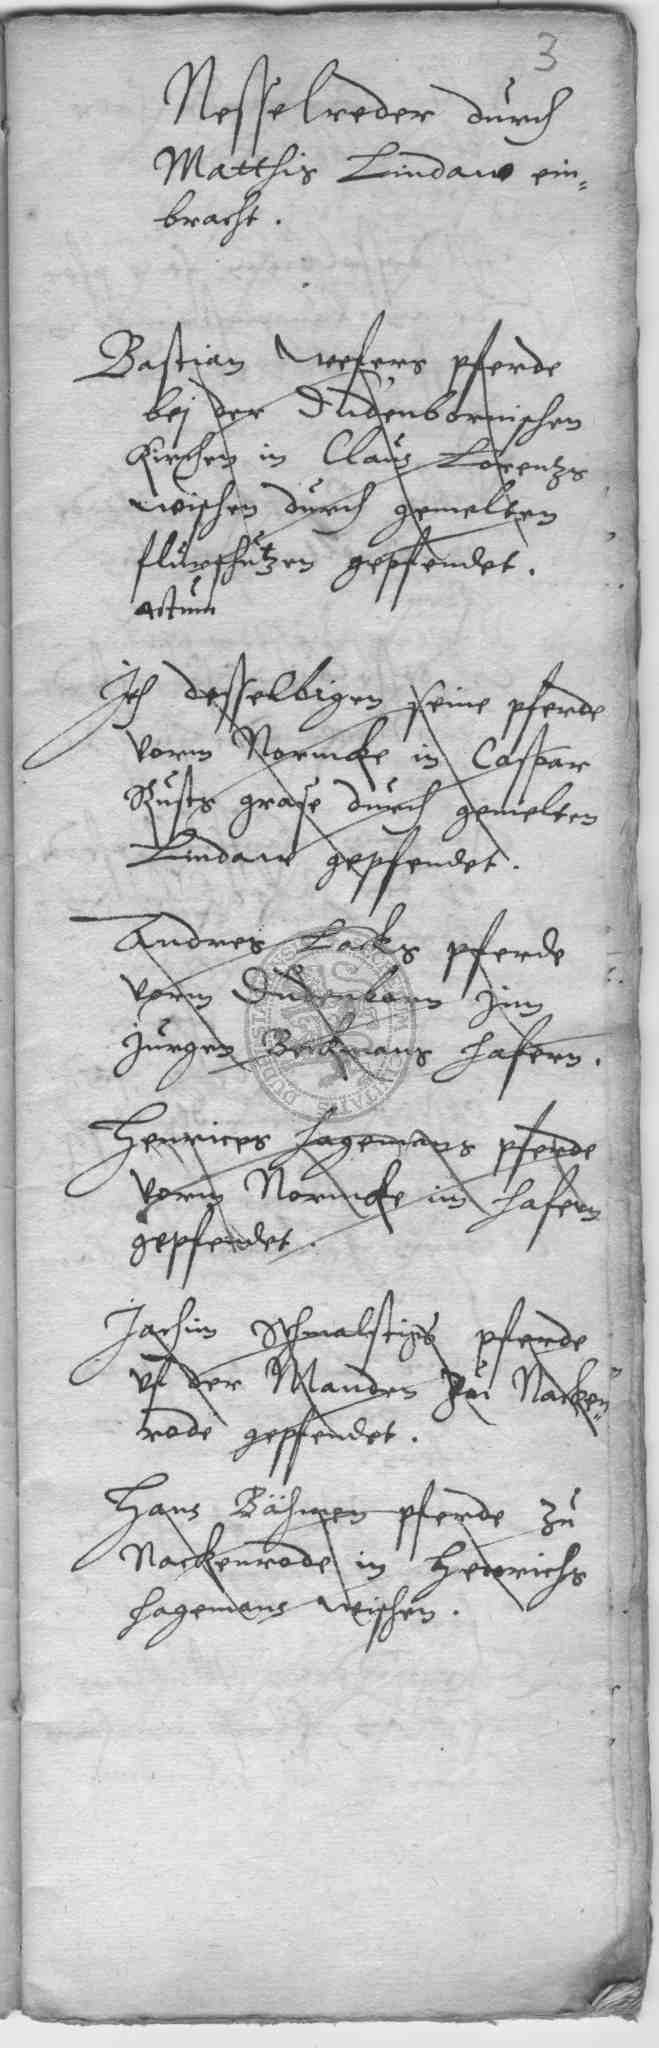 3
Nesselreder durch
Matthis Lindaw ein-
bracht.
Bastian Wefers pferde
bej der Dudenbornischen
Kirchen in Claus Lorentzs
wischen durch gemelten
flurschutzen gepfendet.
actum
It desselbigen seine pferde
vorm Normcke in Caspar
Rusts grase durch gemelten
Lindaw gepfendet.
Andres Lacks pferde
vorm Dudenborn jm
Jurgen Beckmans hafern.
Henrices hagemans pferde
vorm Normcke im hafern
gepfendet.
Jachim Schmalstigs pferde
vf der Manden zu Nacken-
rode gepfendet.
Hans Bähmen pferde zu
Nackenrode in Henrichs
hagemans wischen.